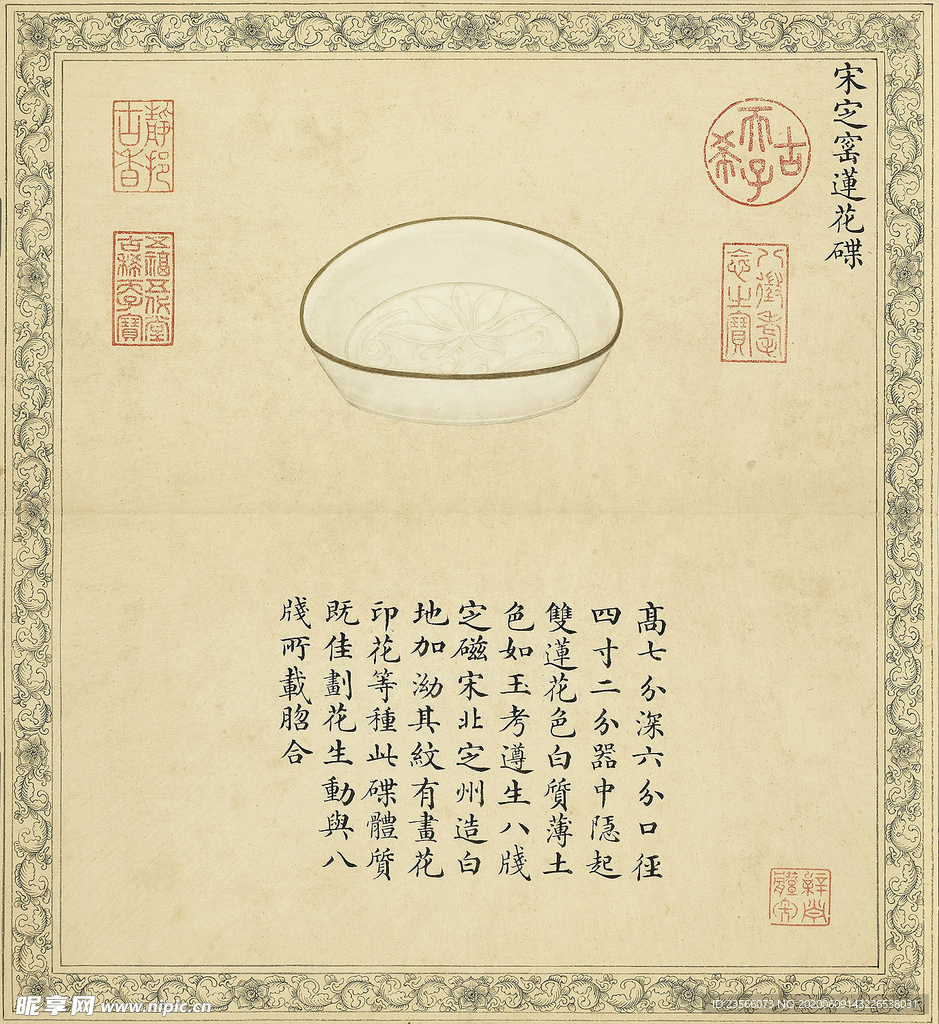 宋㝎窰蓮花碟
古希天子
八徵耄念之寶
靜挹古香
五福五代堂古稀天子寶
髙七分深六分口徑
四寸二分器中隱起
雙蓮花色白質薄土
色如玉考遵生八牋
㝎磁宋北㝎州造白
地加泑其紋有畫花
印花等種此碟體質
既佳劃花生動與八
牋所載脗合
辭尚體要
昵享网 www.nipic.cn
ID:23566073 NO:20200609143226538031